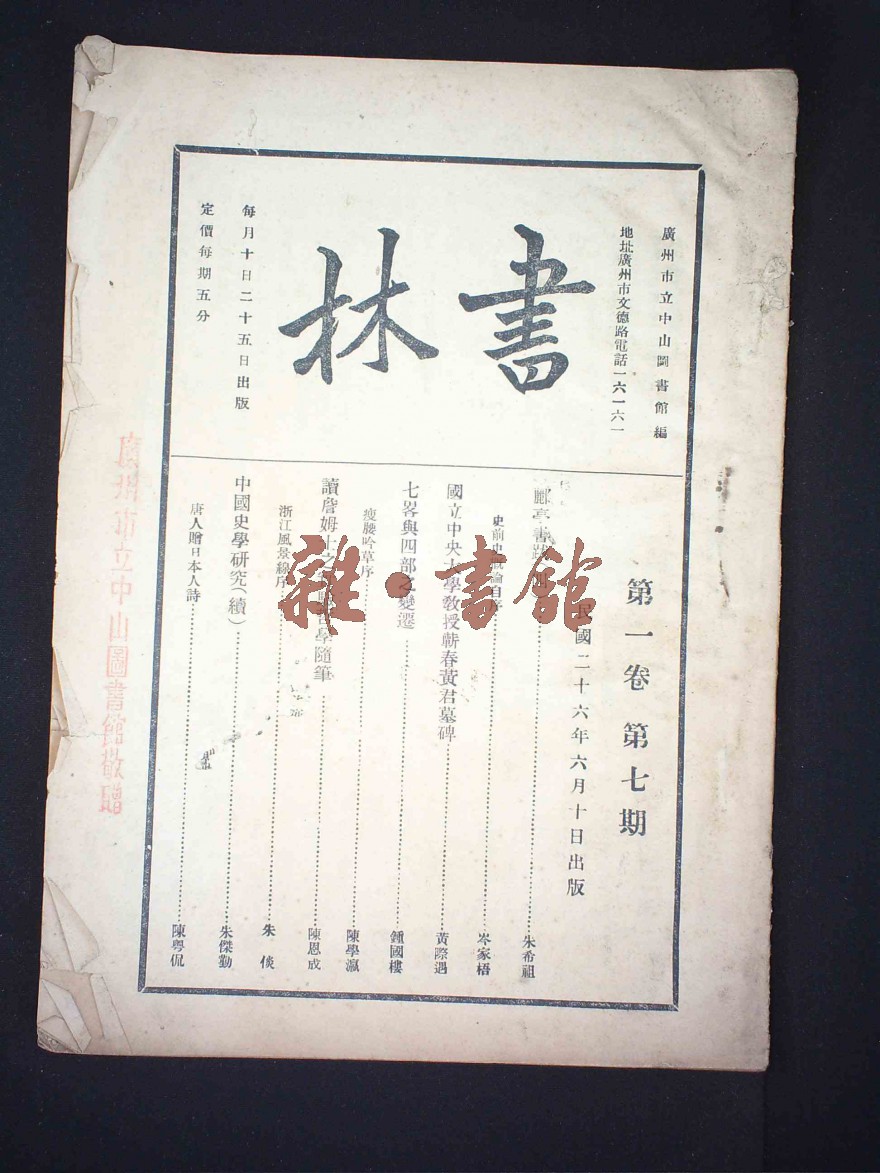 廣州市立中山圖書館編
地址廣州市文德路電話一六一六一
書林
每月十日二十五日出版
定價每期五分
第一卷第七期
民國二十六年六月十日出版
酈亭書跋 朱希祖
史前史概論自序 岑家梧
國立中央大學教授蘄春黃君墓碑 黃際遇
七畧與四部之變遷 鍾國樓
瘦腰吟草序 陳學瀛
讀詹姆士之 學隨筆 陳恩成
浙江風景線序 朱倓
中國史學研究(續) 朱傑勤
唐人贈日本人詩 陳粵侃
廣州市立中山圖書館敬贈
雜·書館